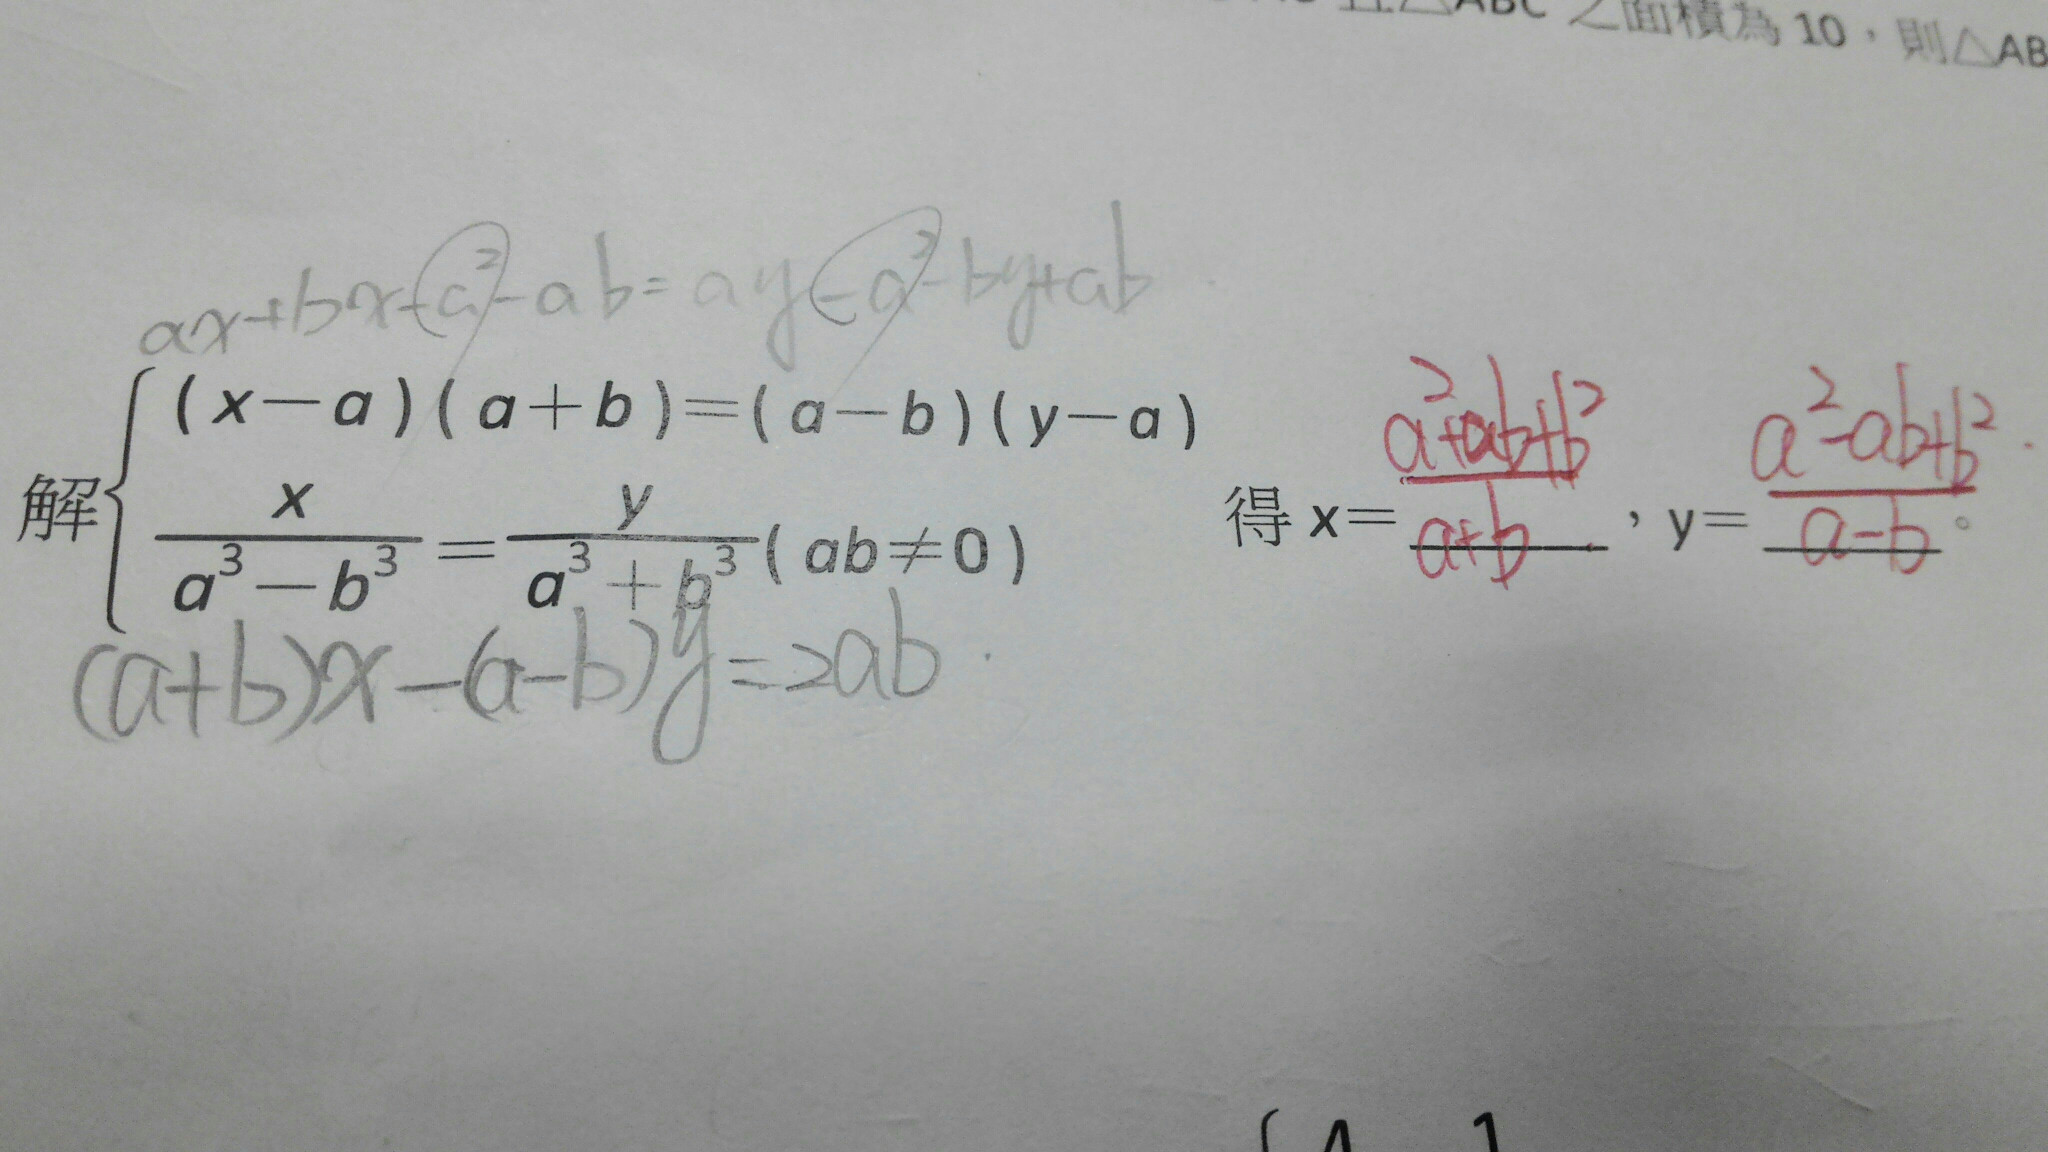 ABC 之面積為 10，則△AB
ax+bx-a²-ab=ay-a²-by+ab
(x－a)(a＋b)＝(a－b)(y－a)
解 x/(a³－b³)＝y/(a³＋b³)(ab≠0) 得 x＝(a²+ab+b²)/(a+b)，y＝(a²-ab+b²)/(a-b)。
(a+b)x-(a-b)y=2ab